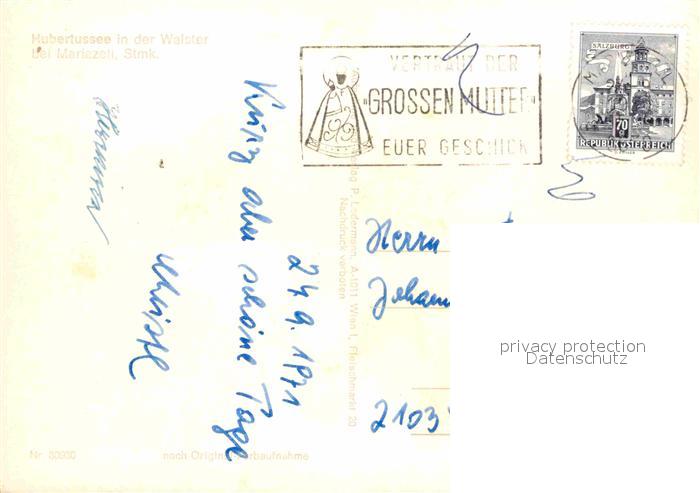 Hubertussee in der Walster
bei Mariazell, Stmk.
VERTRAUT DER
"GROSSEN MUTTER"
EUER GESCHICK
SALZBURG
70
g
REPUBLIK ÖSTERREICH
24 9. 1971
Kurze aber schöne Tage
Christl
Hermann
Verlag P. Ledermann, A-1011 Wien I, Fleischmarkt 20
Nachdruck verboten
Herrn
Johann
2103
privacy protection
Datenschutz
Nr 30930
nach Original-Farbaufnahme